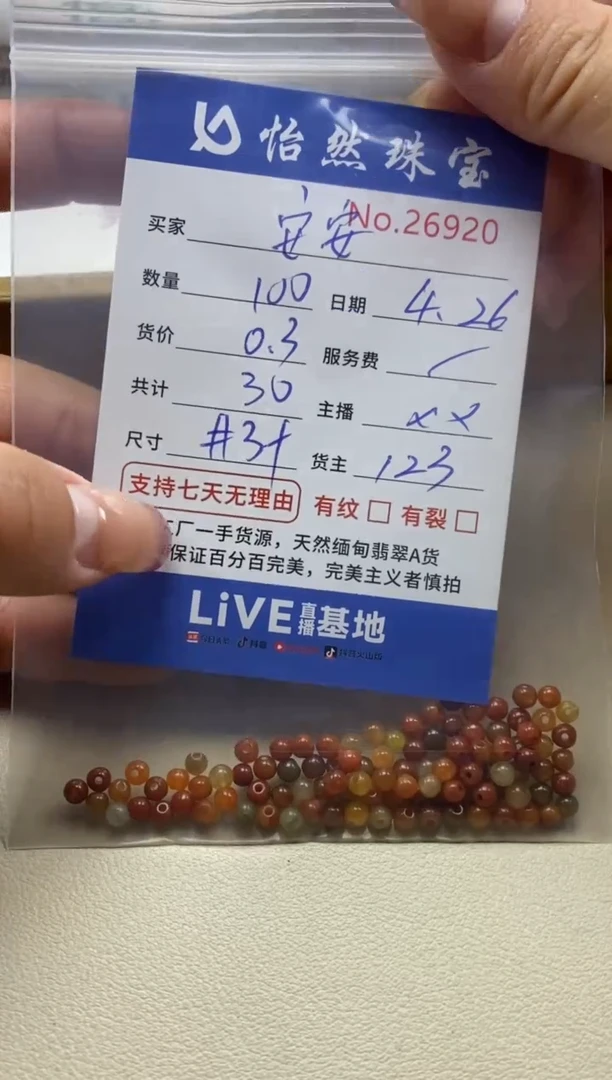 怡然珠宝
买家 安安 No.26920
数量 100 日期 4.26
货价 0.3 服务费 /
共计 30 主播 xx
尺寸 #3+ 货主 123
支持七天无理由 有纹 □ 有裂 □
厂一手货源，天然缅甸翡翠A货
保证百分百完美，完美主义者慎拍
LiVE 直播 基地
抖音 抖音火山版